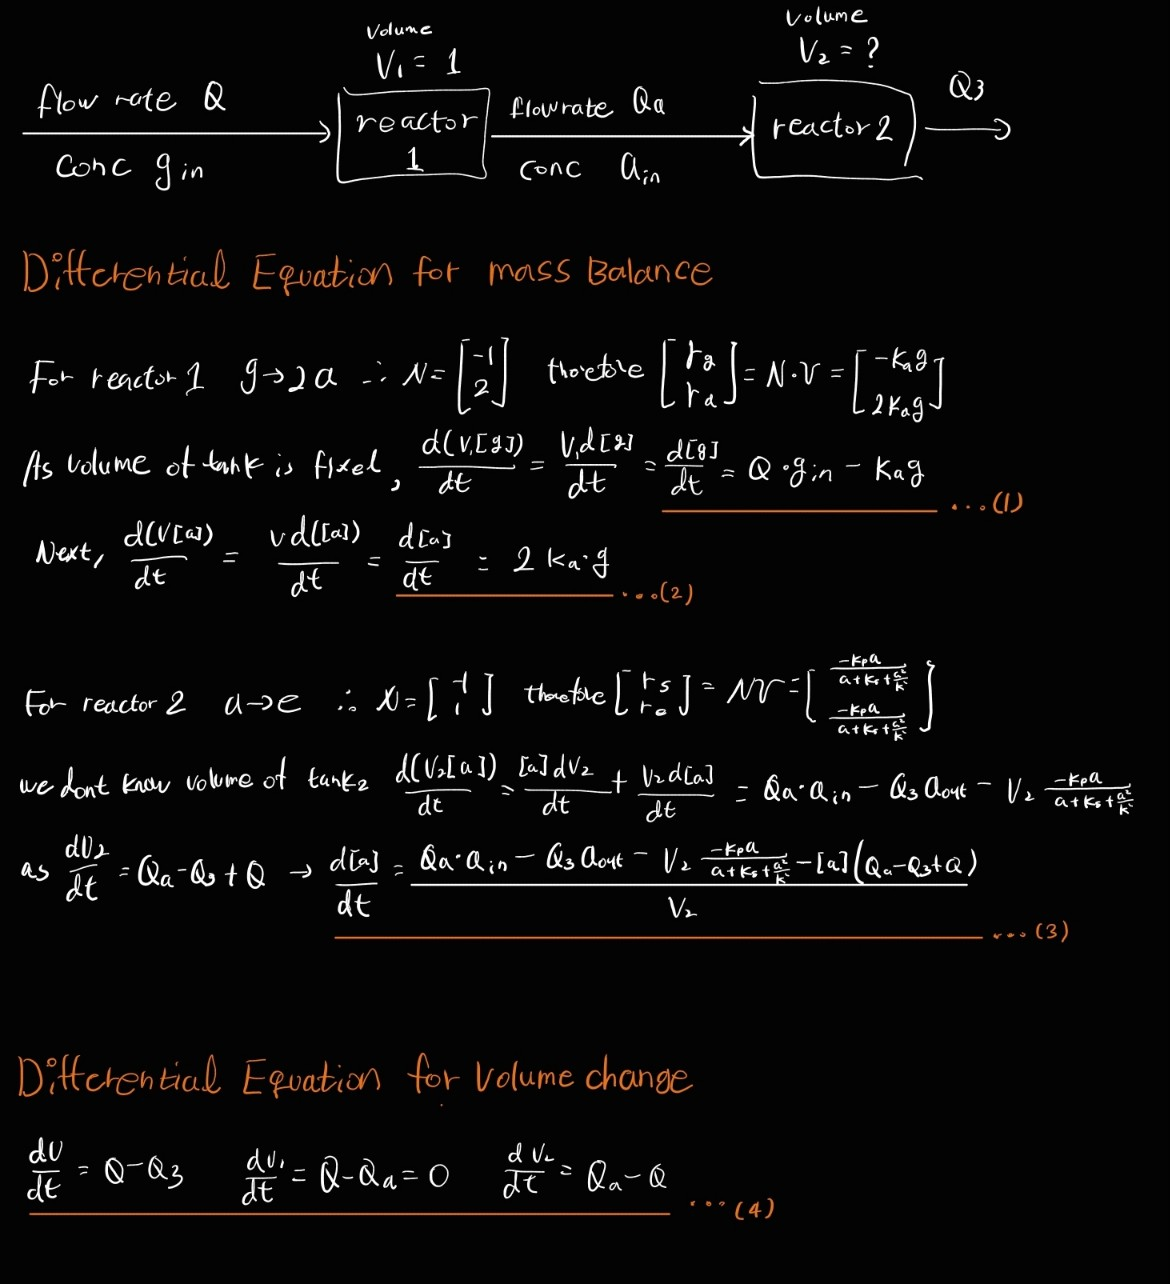 Volume
V₁ = 1
Volume
V₂ = ?
flow rate Q
Conc g in
reactor 1
flowrate Qa
conc a in
reactor 2
Q3
Differential Equation for mass Balance
For reactor 1 g→2a ∴ N = [-1 2] therefore [rg ra] = N·V = [-kag 2kag]
As volume of tank is fixed, d(V₁[g])/dt = V₁d[g]/dt = d[g]/dt = Q·gin − kag ...(1)
Next, d(V[a])/dt = vd([a])/dt = d[a]/dt = 2 ka·g ...(2)
For reactor 2 a→e ∴ N = [-1 1] therefore [rs re] = NV = [-kpa/(a+ks+a²/k) -kpa/(a+ks+a²/k)]
we dont know volume of tank2 d(V₂[a])/dt = [a]dV₂/dt + V₂d[a]/dt = Qa·ain − Q3 aout − V₂ -kpa/(a+ks+a²/k)
as dV₂/dt = Qa−Q3+Q → d[a]/dt = (Qa·ain − Q3 aout − V₂ -kpa/(a+ks+a²/k) − [a](Qa−Q3+Q))/V₂ ...(3)
Differential Equation for Volume change
dV/dt = Q−Q3 dV₁/dt = Q−Qa = 0 dV₂/dt = Qa−Q ...(4)